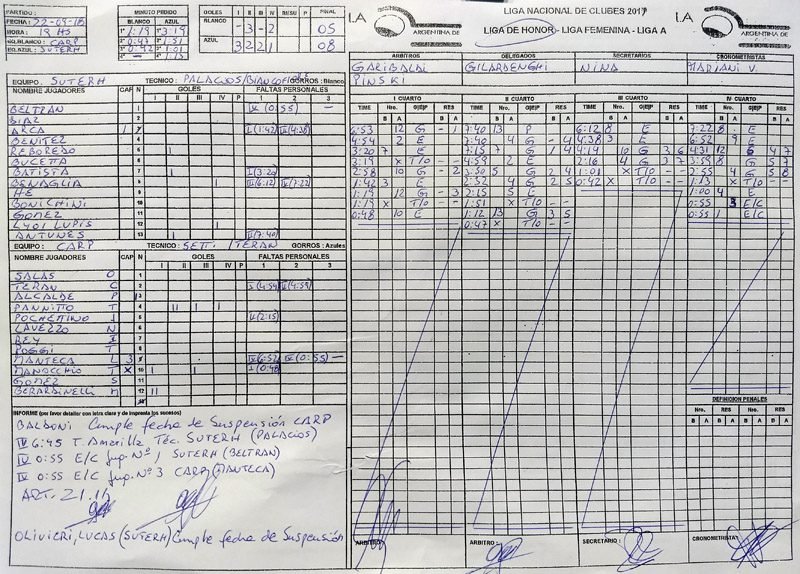 PARTIDO :
FECHA : 22-09-18
HORA : 19 HS
EQ.BLANCO : CARP
EQ.AZUL : SUTERH
MINUTO PEDIDO
BLANCO AZUL
1° 1:19 1° 3:19
2° 0:47 2° 1:51
3° 0:42 3° 1:01
4° — 4° 1:13
GOLES I II III IV RESU P FINAL
BLANCO - 3 - 2 05
AZUL 3 2 2 1 08
LA
ARGENTINA DE
LIGA NACIONAL DE CLUBES 2017
LIGA DE HONOR - LIGA FEMENINA - LIGA A
LA
ARGENTINA DE
ARBITROS DELEGADOS SECRETARIOS CRONOMETRISTAS
GARIBALDI GILARDENGHI NINA MARIANI V.
PINSKI
EQUIPO : SUTERH TECNICO : PALACIOS/ GORROS : Blanco
NOMBRE JUGADORES CAP N GOLES FALTAS PERSONALES
I II III IV P 1 2 3
BELTRAN 1 IV (0:55) —
DIAZ 2
ARCA 3 I (1:42) III (4:38)
BENITEZ 4
REBOREDO 5
BUCETTA 6
BATISTA 7 I (3:20)
BENAGLIA 8 III (6:12) IV (7:22)
HE 9
BONICHINI 10
GOMEZ 11
LUPIS 12
ANTUNES 13 II (7:40)
EQUIPO : CARP TECNICO : SETTI / TERAN GORROS : Azules
NOMBRE JUGADORES CAP N GOLES FALTAS PERSONALES
I II III IV P 1 2 3
SALAS O 1
TERAN C 2 I (4:54) II (4:59)
ALCALDE P 3
PANNITTO T 4
POCHETTINO I 5 II (2:15)
LAVEZZO N 6
REY I 7
POGGI T 8
MANTECA L 3 9 IV (6:52) IV (0:55) —
MANOCCHIO T X 10 I (0:48)
GOMEZ S 11
BERARDINELLI M 12
13
INFORME (por favor detallar con letra clara y de imprenta los sucesos)
BALDONI Cumple fecha de Suspensión CARP
IV 6:45 T. Amarilla Téc. SUTERH (PALACIOS)
IV 0:55 E/C Jug. Nº 1 SUTERH (BELTRAN)
IV 0:55 E/C Jug. Nº 3 CARP (MANTECA)
ART. 21.14
OLIVIERI, LUCAS (SUTERH) Cumple fecha de Suspensión
I CUARTO
TIME Nro. G|E|P RES
B A B A
6:53 12 G - 1
4:54 2 E
3:20 7 E
3:19 X T/O - -
2:58 10 G - 2
1:42 3 E
1:19 12 G - 3
1:19 X T/O - -
0:48 10 E
II CUARTO
TIME Nro. G|E|P RES
B A B A
7:40 13 P
7:40 4 G - 4
7:15 7 G 1 4
4:59 2 E
3:50 5 G 2 4
2:52 4 G 2 5
2:15 5 E
1:51 X T/O - -
1:12 13 G 3 5
0:47 X T/O - -
III CUARTO
TIME Nro. G|E|P RES
B A B A
6:12 8 E
4:38 3 E
4:19 10 G 3 6
2:16 4 G 3 7
1:01 X T/O - -
0:42 X T/O - -
IV CUARTO
TIME Nro. G|E|P RES
B A B A
7:22 8 E
6:52 9 E
4:31 12 G 4 7
3:59 8 G 5 7
2:55 4 G 5 8
1:13 X T/O - -
1:00 4 E
0:55 3 E/C
0:55 1 E/C
DEFINICION PENALES
Nro. RES Nro. RES
B A B A B A B A
ARBITRO : ARBITRO : SECRETARIO : CRONOMETRISTA :